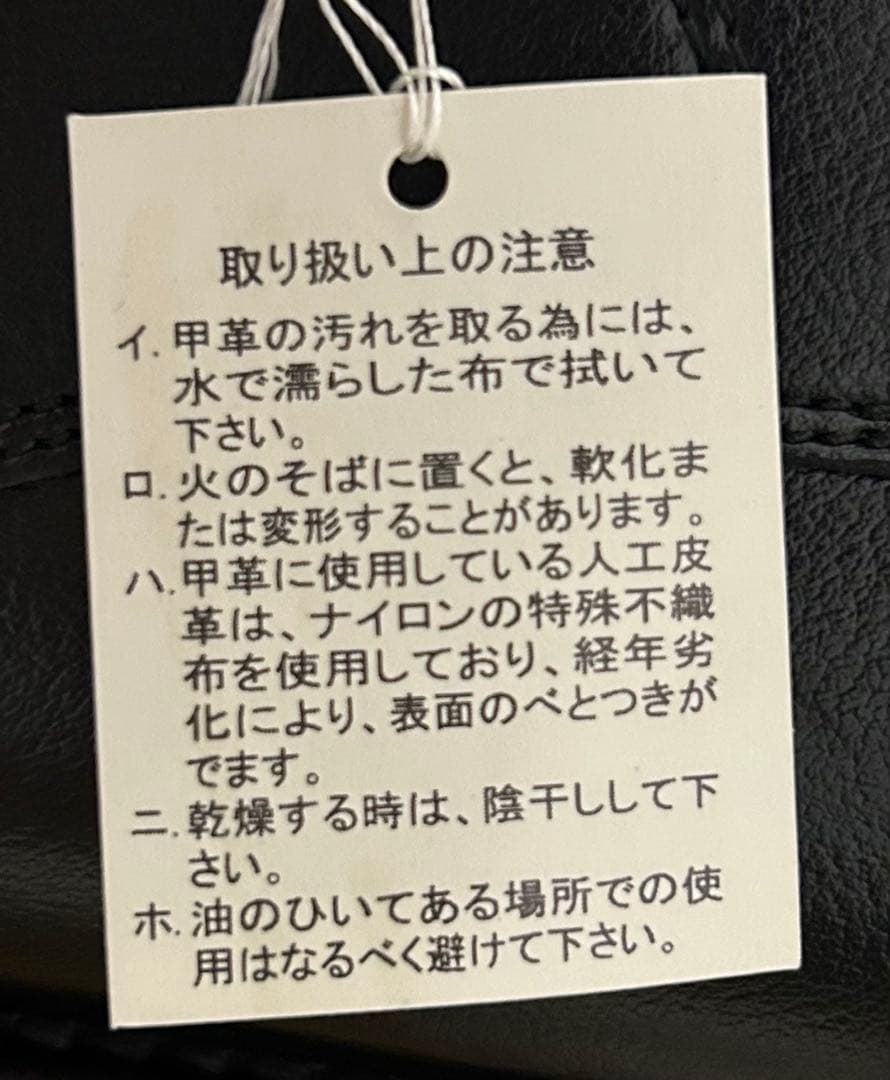 取り扱い上の注意
イ.甲革の汚れを取る為には、
水で濡らした布で拭いて
下さい。
ロ.火のそばに置くと、軟化ま
たは変形することがあります。
ハ.甲革に使用している人工皮
革は、ナイロンの特殊不織
布を使用しており、経年劣
化により、表面のべとつきが
でます。
ニ.乾燥する時は、陰干しして下
さい。
ホ.油のひいてある場所での使
用はなるべく避けて下さい。